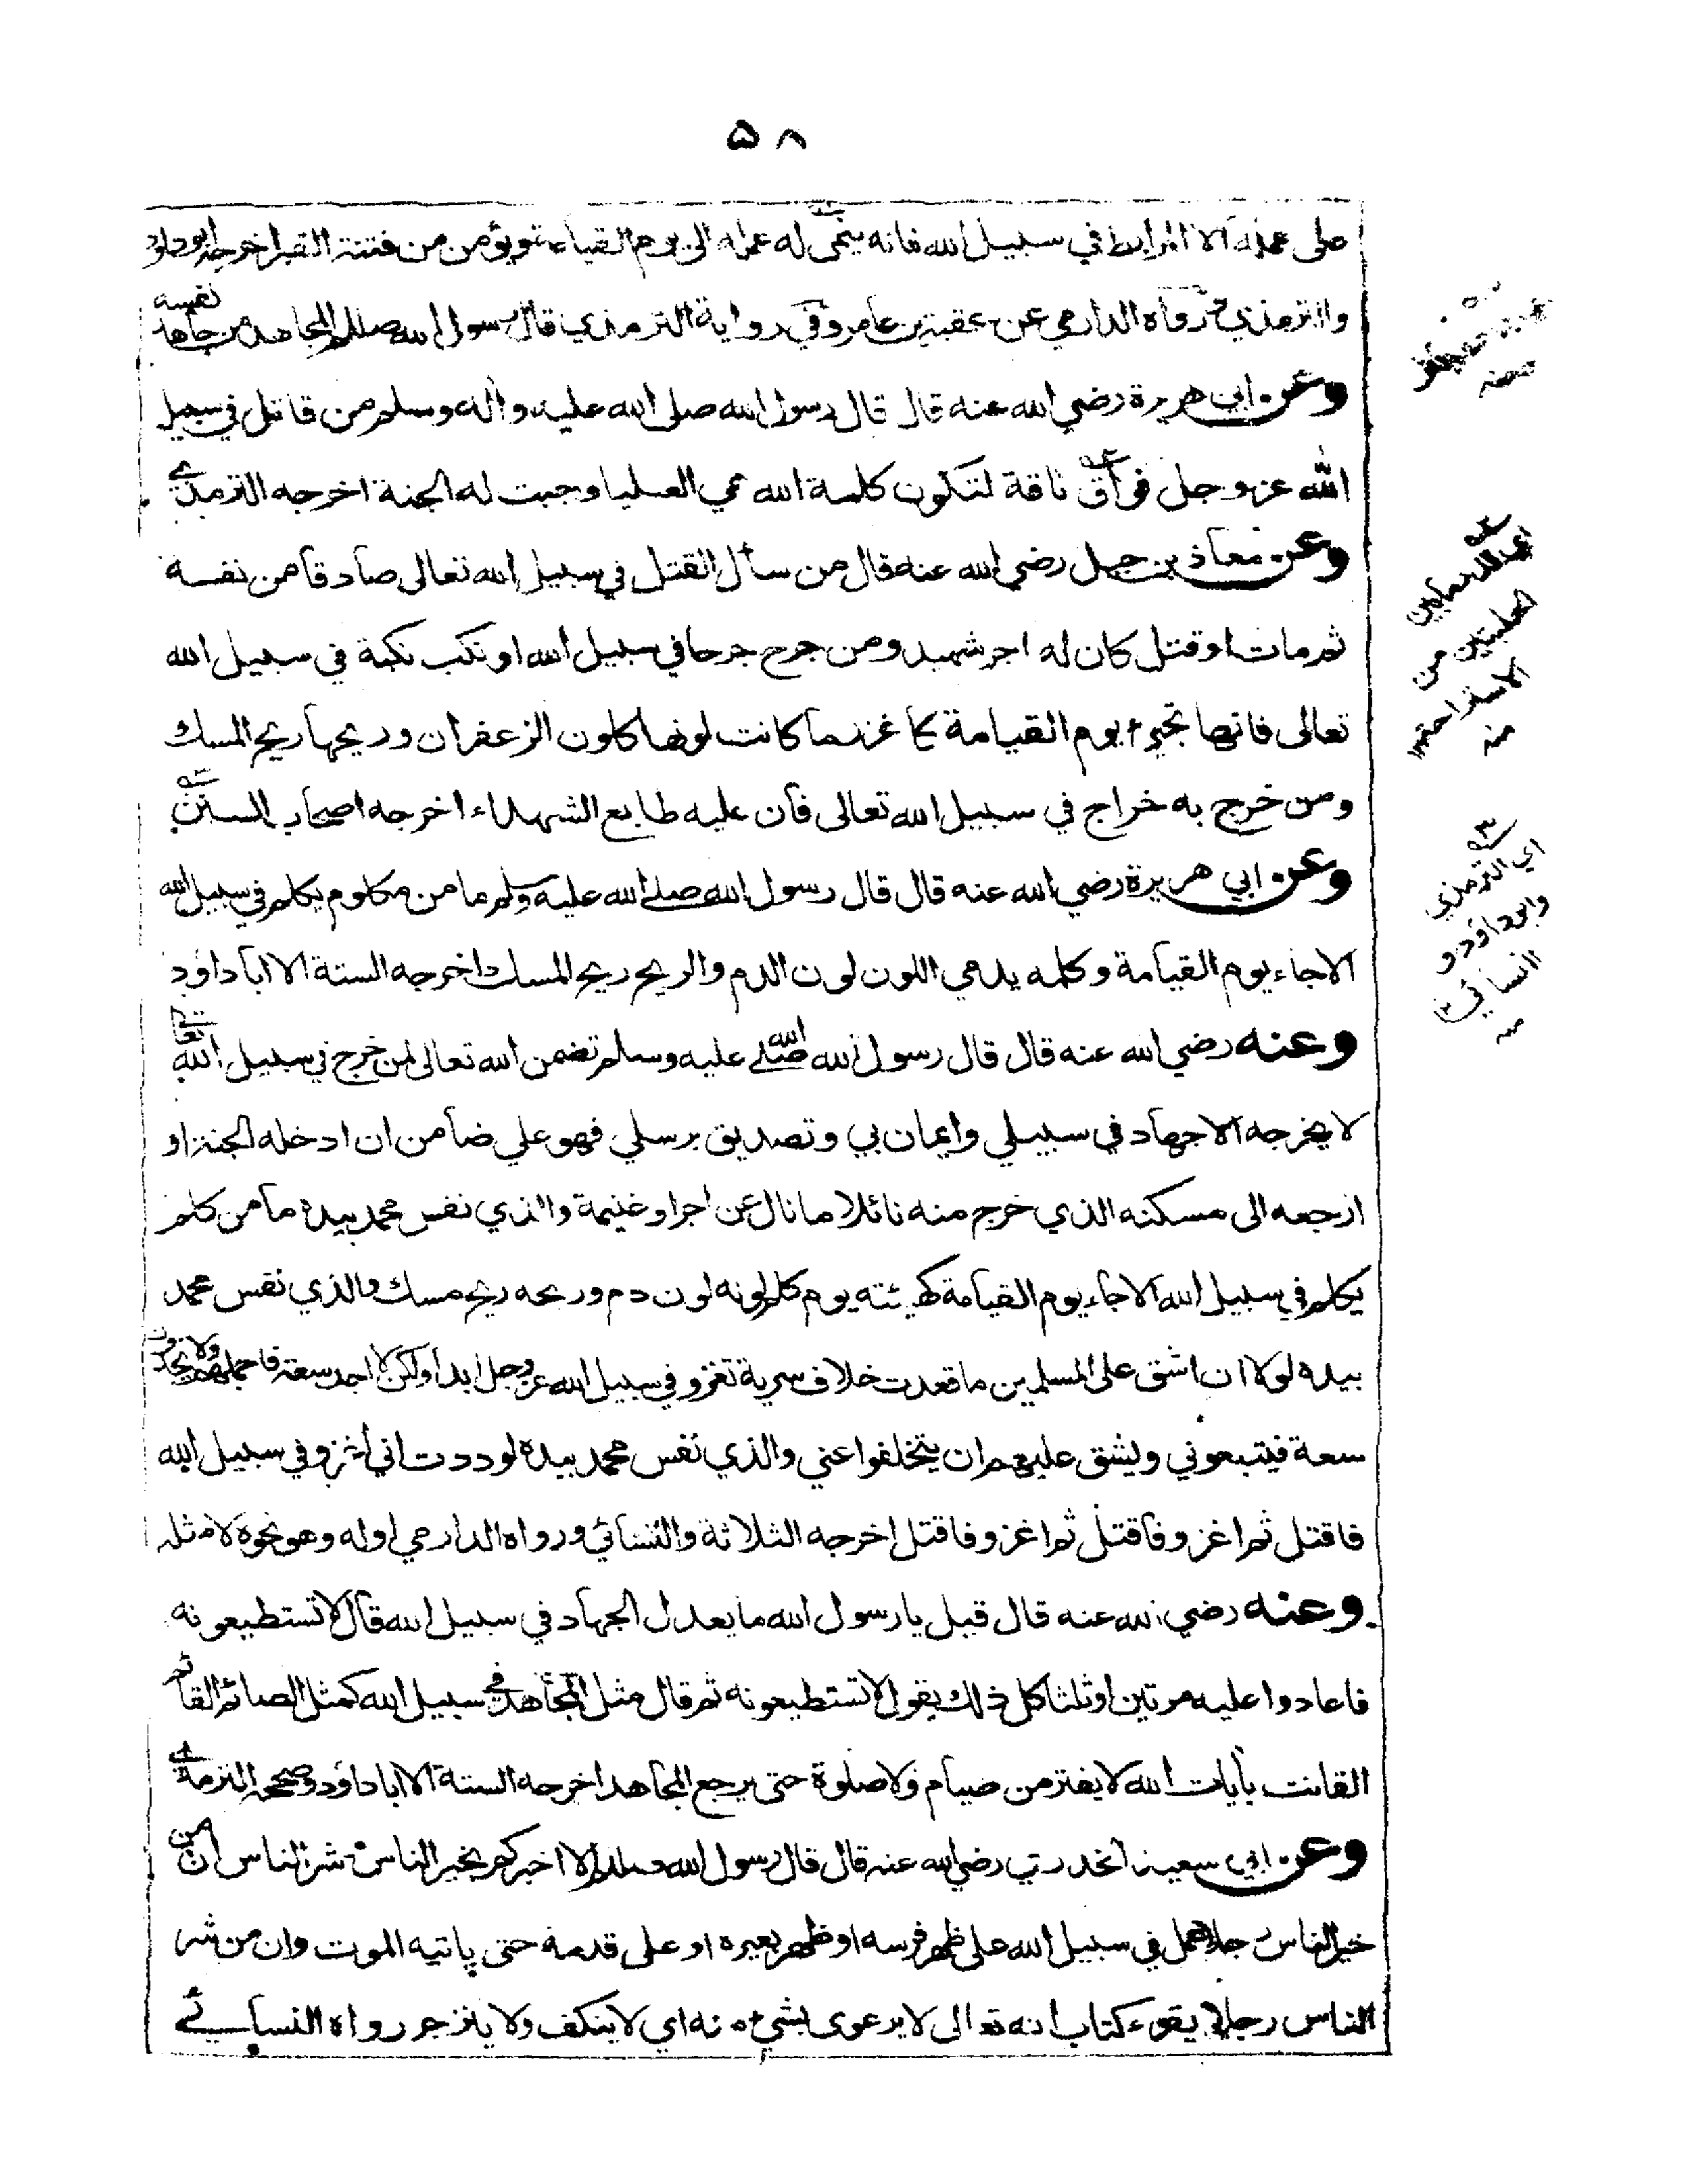 ٥٨
على عمله الا المرابط في سبيل الله فانه ينمى له عمله الى يوم القيامة ويؤمن من فتنة القبر اخرجه ابوداود
والترمذي ورواه الدارمي عن عقبة بن عامر وفي رواية الترمذي قال رسول الله صللم المجاهد من جاهد نفسه
وعن ابي هريرة رضي الله عنه قال قال رسول الله صلى الله عليه واله وسلم من قاتل في سبيل
الله عزوجل فواق ناقة لتكون كلمة الله هي العليا وجبت له الجنة اخرجه الترمذي
وعن معاذ بن جبل رضي الله عنه قال من سأل القتل في سبيل الله تعالى صادقا من نفسه
ثم مات او قتل كان له اجر شهيد ومن جرح جرحا في سبيل الله او نكب نكبة في سبيل الله
تعالى فانها تجيء يوم القيامة كاغزر ما كانت لونها كلون الزعفران وريحها ريح المسك
ومن خرج به خراج في سبيل الله تعالى فان عليه طابع الشهداء اخرجه اصحاب السنن
وعن ابي هريرة رضي الله عنه قال قال رسول الله صلى الله عليه وسلم ما من مكلوم يكلم في سبيل الله
الا جاء يوم القيامة وكلمه يدمي اللون لون الدم والريح ريح المسك اخرجه الستة الا ابا داود
وعنه رضي الله عنه قال قال رسول الله صلى الله عليه وسلم تضمن الله تعالى لمن خرج في سبيل الله تعالى
لا يخرجه الا جهاد في سبيلي وايمان بي وتصديق برسلي فهو علي ضامن ان ادخله الجنة او
ارجعه الى مسكنه الذي خرج منه نائلا ما نال عن اجر او غنيمة والذي نفس محمد بيده ما من كلم
يكلم في سبيل الله الا جاء يوم القيامة كهيئته يوم كلم لونه لون دم وريحه ريح مسك والذي نفس محمد
بيده لولا ان اشق على المسلمين ما قعدت خلاف سرية تغزو في سبيل الله عزوجل ابدا ولكن لا اجد سعة فاحملهم ولا يجدون
سعة فيتبعوني ويشق عليهم ان يتخلفوا عني والذي نفس محمد بيده لوددت اني اغزو في سبيل الله
فاقتل ثم اغزو فاقتل ثم اغزو فاقتل اخرجه الثلاثة والنسائي ورواه الدارمي اوله وهو نحوه لا مثله
وعنه رضي الله عنه قال قيل يا رسول الله ما يعدل الجهاد في سبيل الله قال لا تستطيعونه
فاعادوا عليه مرتين او ثلثا كل ذلك يقول لا تستطيعونه ثم قال مثل المجاهد في سبيل الله كمثل الصائم القائم
القانت بآيات الله لا يفتر من صيام ولا صلوة حتى يرجع المجاهد اخرجه الستة الا ابا داود وصححه الترمذي
وعن ابي سعيد الخدري رضي الله عنه قال قال رسول الله صللم الا اخبركم بخير الناس وشر الناس ان من
خير الناس رجلا عمل في سبيل الله على ظهر فرسه او ظهر بعيره او على قدمه حتى ياتيه الموت وان من شر
الناس رجلا يقرء كتاب الله تعالى لا يرعوى بشيء منه اي لا ينكف ولا ينزجر رواه النسائي
الحلبتين من
الاستراحة
منه
اي الترمذي
وابوداود و
النسائي
منه